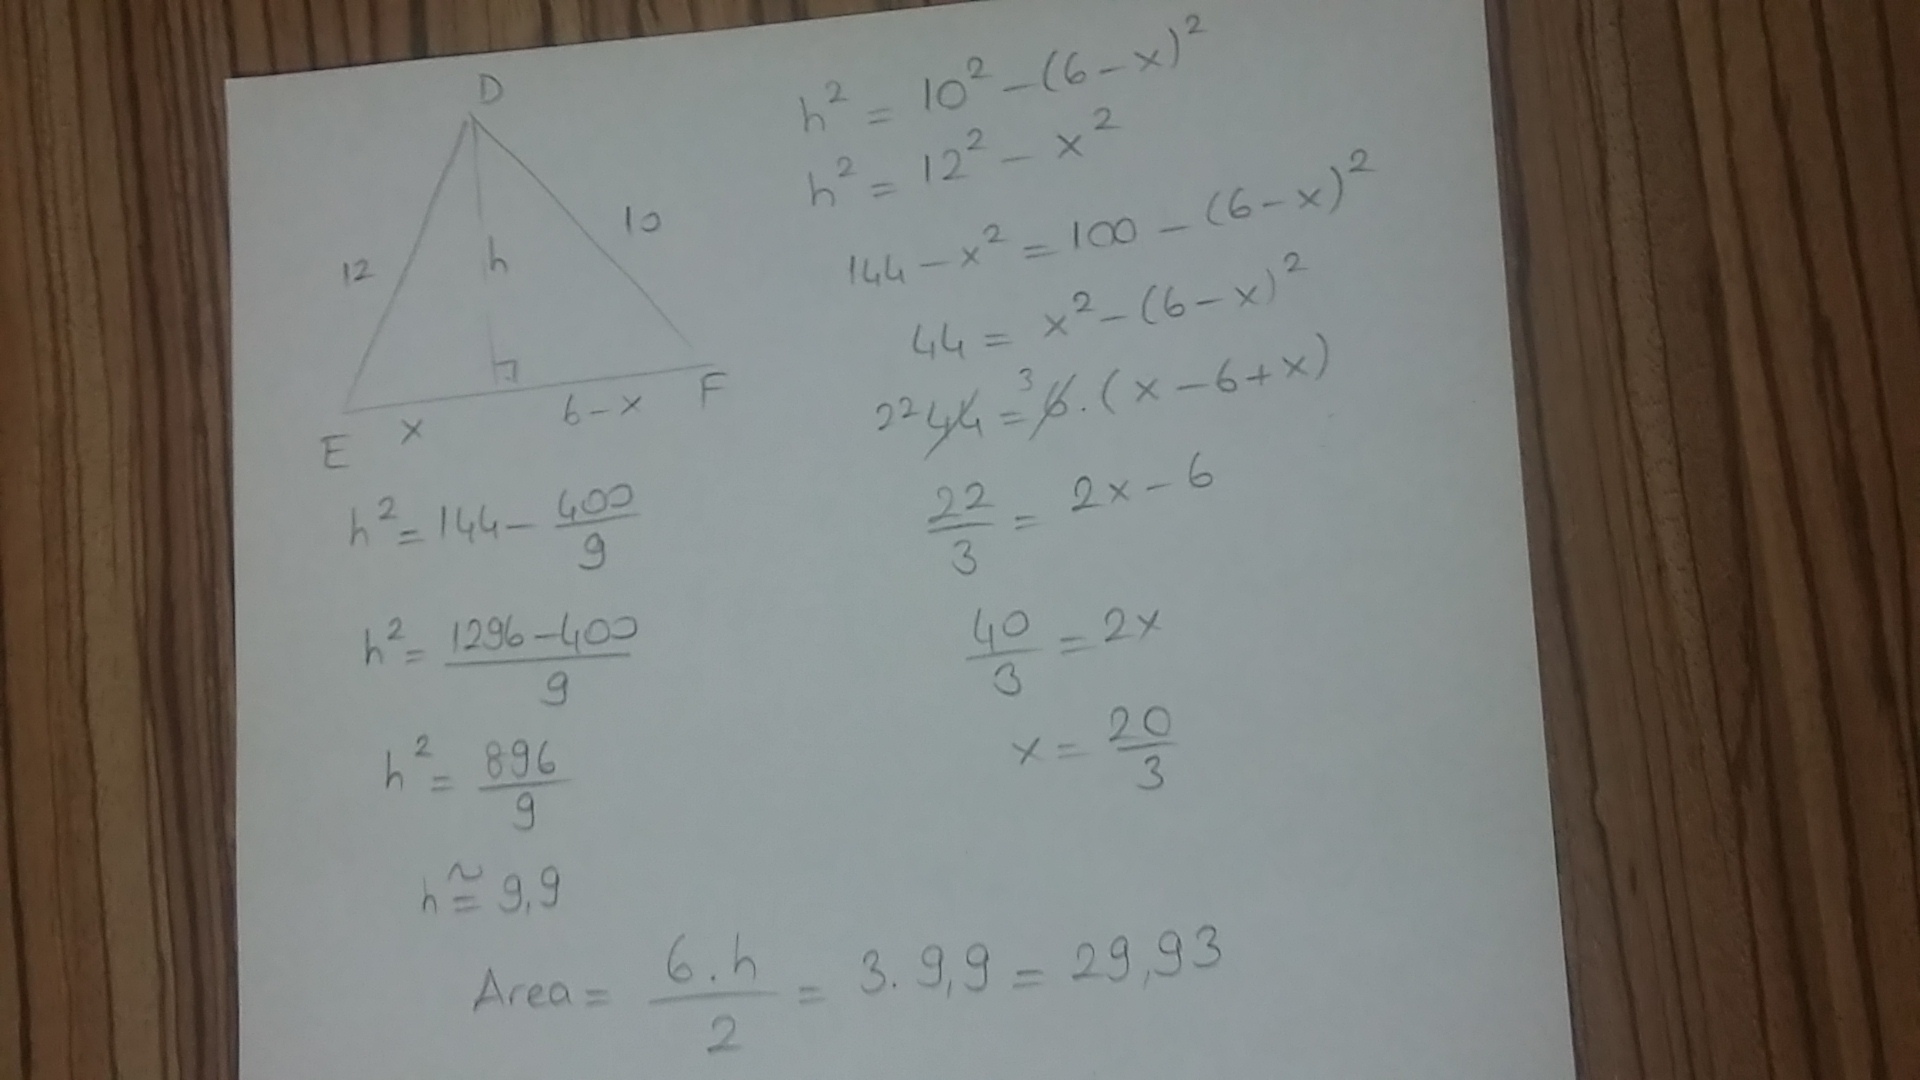 D
12
h
10
E
x
6-x
F
h² = 10² - (6-x)²
h² = 12² - x²
144 - x² = 100 - (6-x)²
44 = x² - (6-x)²
22 44 = 3 6.(x-6+x)
22/3 = 2x - 6
40/3 = 2x
x = 20/3
h² = 144 - 400/9
h² = 1296-400/9
h² = 896/9
h ≅ 9,9
Area = 6.h/2 = 3.9,9 = 29,93